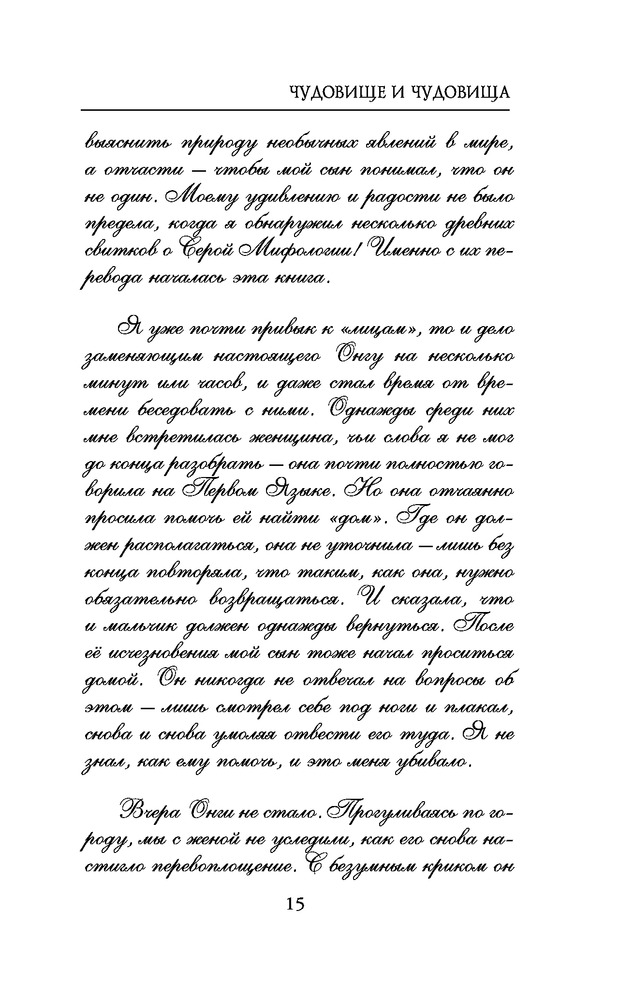 ЧУДОВИЩЕ И ЧУДОВИЩА
выяснить природу необычных явлений в мире,
а отчасти — чтобы мой сын понимал, что он
не один. Моему удивлению и радости не было
предела, когда я обнаружил несколько древних
свитков о Серой Мифологии! Именно с их пе-
ревода началась эта книга.
Я уже почти привык к «лицам», то и дело
заменяющим настоящего Онгу на несколько
минут или часов, и даже стал время от вре-
мени беседовать с ними. Однажды среди них
мне встретилась женщина, чьи слова я не мог
до конца разобрать — она почти полностью го-
ворила на Первом Языке. Но она отчаянно
просила помочь ей найти «дом». Где он дол-
жен располагаться, она не уточнила — лишь без
конца повторяла, что таким, как она, нужно
обязательно возвращаться. И сказала, что
и мальчик должен однажды вернуться. После
её исчезновения мой сын тоже начал проситься
домой. Он никогда не отвечал на вопросы об
этом — лишь смотрел себе под ноги и плакал,
снова и снова умоляя отвести его туда. Я не
знал, как ему помочь, и это меня убивало.
Вчера Онги не стало. Прогуливаясь по го-
роду, мы с женой не уследили, как его снова на-
стигло перевоплощение. С безумным криком он
15